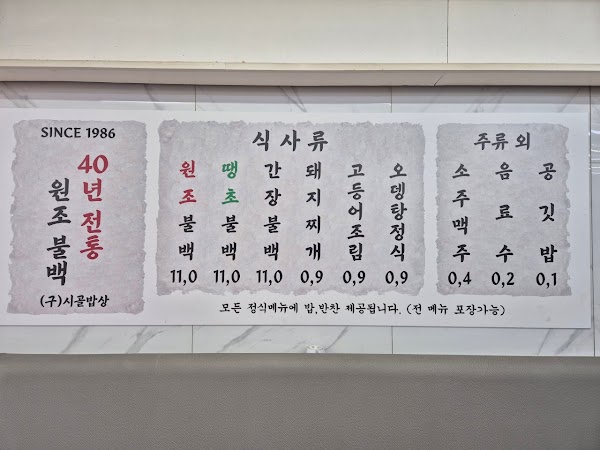 SINCE 1986
40년 전통
원조 불백
(구)시골밥상
식사류
원조불백
11,0
땡초불백
11,0
간장불백
11,0
돼지찌개
0,9
고등어조림
0,9
오뎅탕정식
0,9
모든 정식메뉴에 밥,반찬 제공됩니다. (전 메뉴 포장가능)
주류 외
소주맥주
0,4
음료수
0,2
공깃밥
0,1